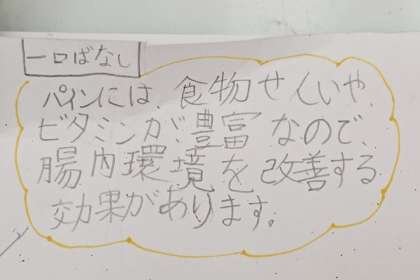 一口ばなし
パインには、食物せんいや、
ビタミンが、豊富なので、
腸内環境を改善する
効果があります。